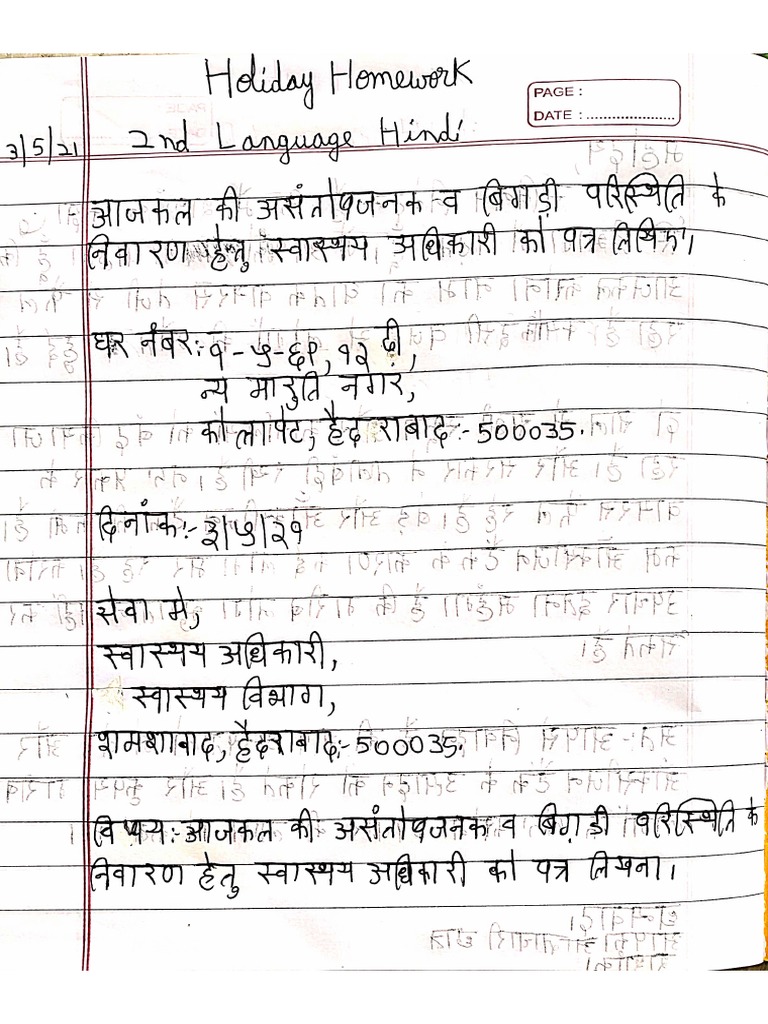 Holiday Homework
PAGE :
DATE : ......................
3/5/21 2nd Language Hindi
आजकल की असंतोषजनक व बिगड़ी परिस्थिति के
निवारण हेतु स्वास्थय अधिकारी को पत्र लिखिए।
घर नंबर:- १-५-६१, १२ दी,
न्य मारुति नगर,
कौलापेट, हैदराबाद:-500035.
दिनांक:-३/५/२१
सेवा मे,
स्वास्थय अधिकारी,
स्वास्थय विभाग,
शमशाबाद, हैदराबाद:-500035.
विषय:-आजकल की असंतोषजनक व बिगड़ी परिस्थिति के
निवारण हेतु स्वास्थय अधिकारी को पत्र लिखना।